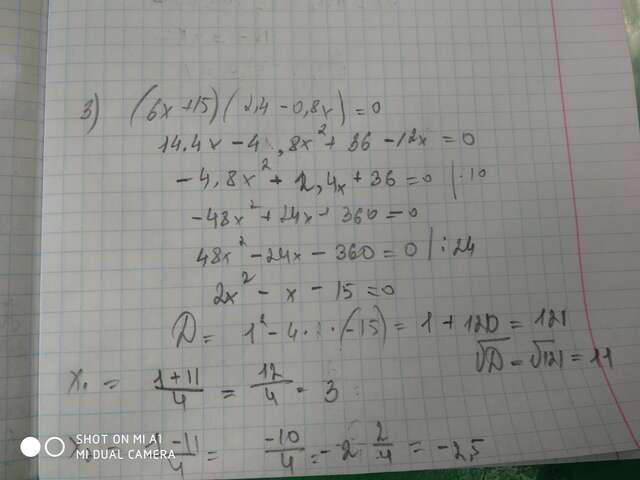 3) (6x+15)(2,4-0,8x)=0
14.4x-4,8x²+36-12x=0
-4,8x²+2,4x+36=0 |·10
-48x²+24x+360=0
48x²-24x-360=0 |:24
2x²-x-15=0
D= 1²-4·2·(-15)=1+120=121
√D=√121=11
x₁ = (1+11)/4 = 12/4 = 3
-11/4 = -10/4 = -2 2/4 = -2,5
SHOT ON MI A1
MI DUAL CAMERA